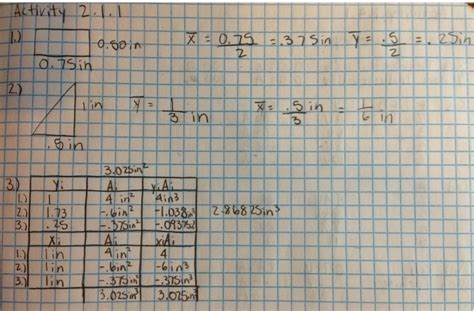 Activity 2.1.1
1.) 0.50in x̄ = 0.75/2 = .375in ȳ = .5/2 = .25in
0.75in
2.) 1in ȳ = 1/3 in x̄ = .5in/3 = 1/6 in
.5in
3.025in²
3.) Yi Ai yiAi
1.) 1 4 in² 4in³
2.) 1.73 -.6in² -1.038in³ 2.86825in³
3.) .25 -.375in² -.09375in³
Xi Ai xiAi
1.) 1in 4in² 4
2.) 1in -.6in² -.6in³
3.) 1in -.375in² -.375in³
3.025in³ 3.025in³